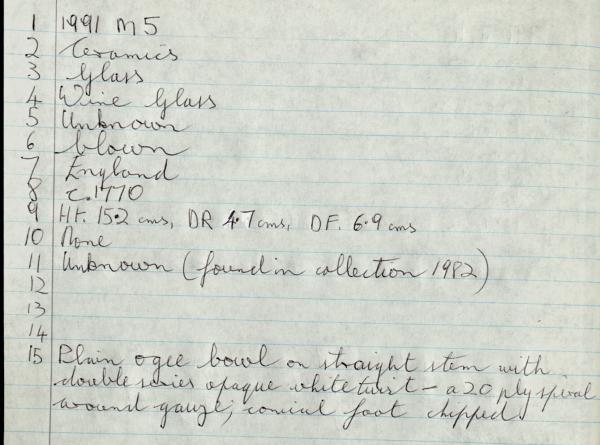 1 1991 M5
2 Ceramics
3 Glass
4 Wine Glass
5 Unknown
6 blown
7 England
8 c.1770
9 HT. 15.2 cms, DR 4.7 cms, DF. 6.9 cms
10 None
11 Unknown (found in collection 1982)
12
13
14
15 Plain ogee bowl on straight stem with
double series opaque white twist - a 20 ply spiral
around gauze; conical foot chipped.